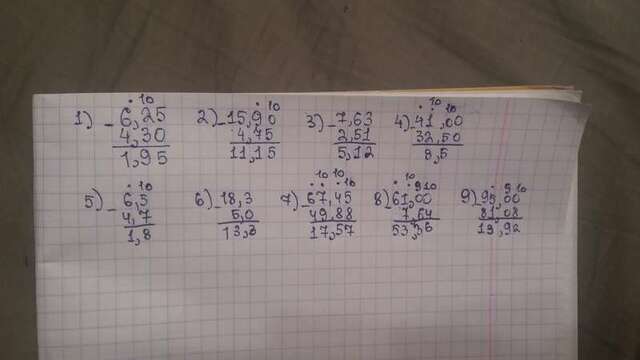 1) - 6,25
10
4,30
1,95
2) - 15,90
10
4,75
11,15
3) - 7,63
2,51
5,12
4) - 41,00
10 10
32,50
8,5
5) - 6,5
10
4,7
1,8
6) - 18,3
5,0
13,3
7) - 67,45
10 10 10
49,88
17,57
8) - 61,00
10 9 10
7,64
53,36
9) - 95,00
9 10
81,08
13,92